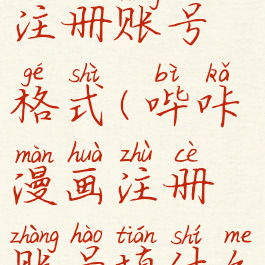 注册账号
gé shì bì kǎ
格式(哔咔
màn huà zhù cè
漫画注册
zhàng hào tián shí me
账号填什么